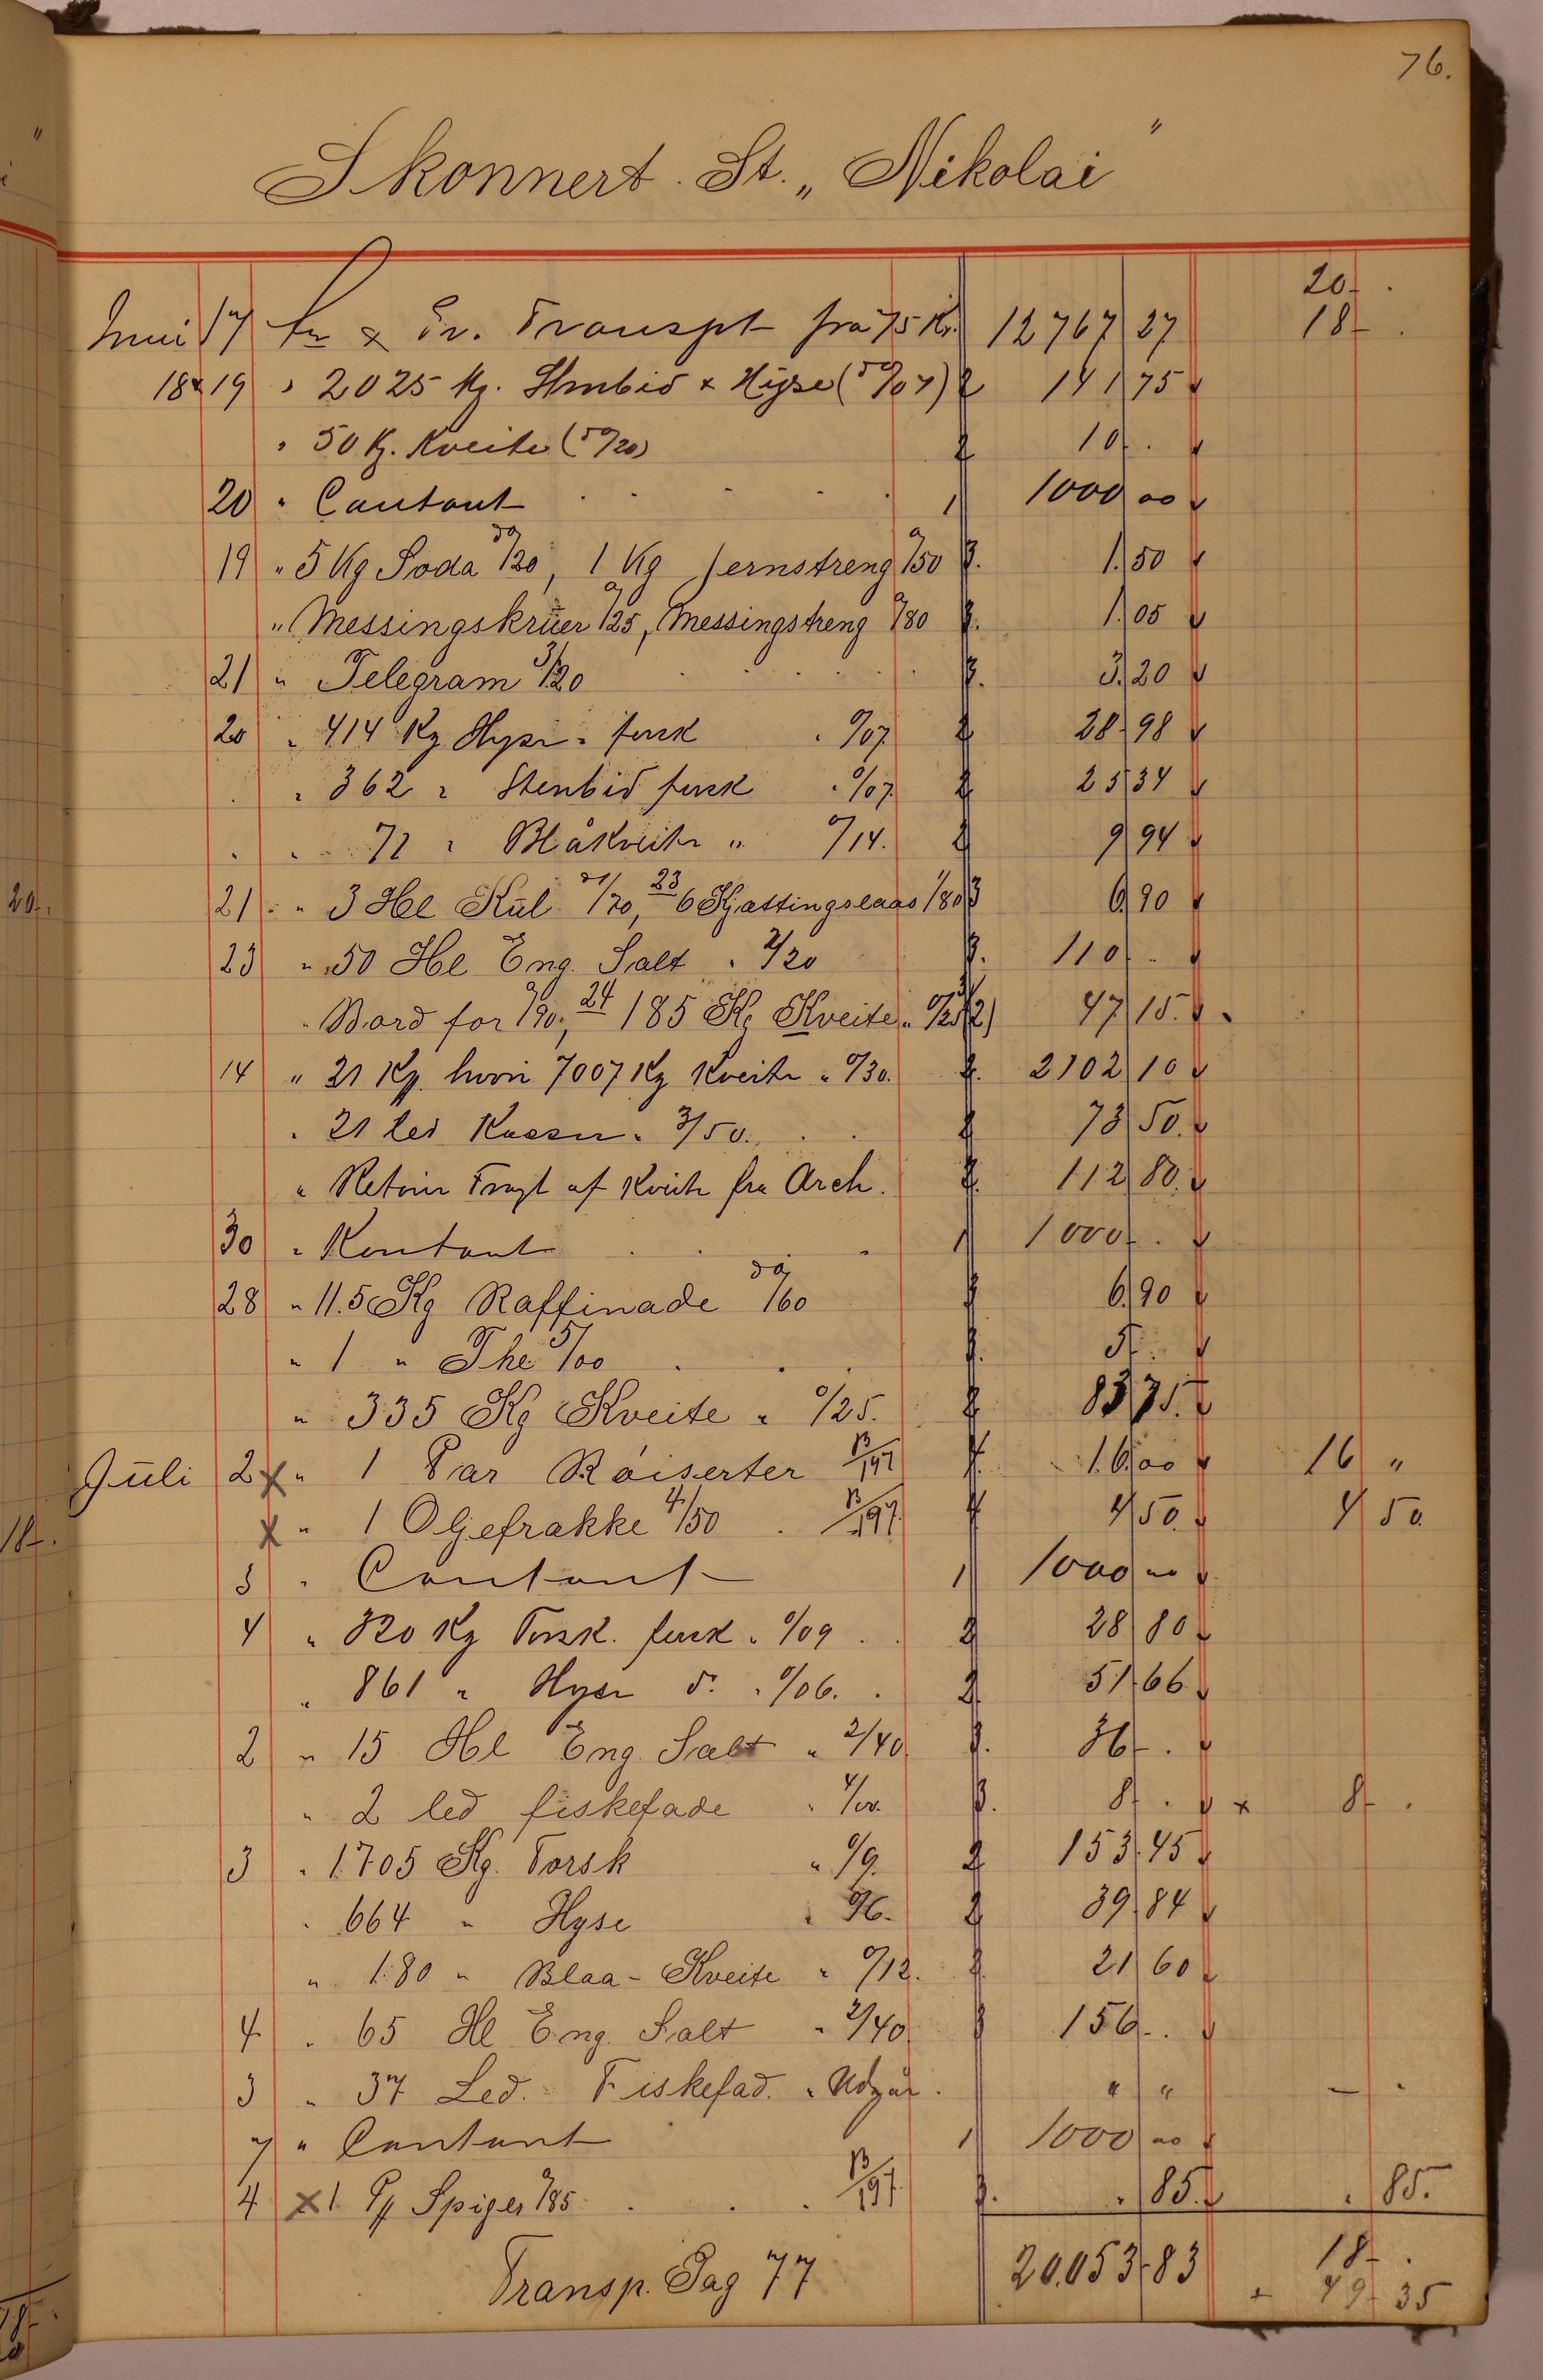 76.
Skonnert. St. „Nikolai"
20 -.
Juni 17 Transpt fra 75 Kr. 12767 27 18 -.
18 & 19 " 2025 Kg. Stenbid & Hyse (à 0/07) 141 75
" 50 Kg. Kveite (à 0/20) 10 -.
20 " Contant 1 1000 00
19 " 5 Kg Soda à 0/20, 1 Kg Jernstreng 0/50 β. 1.50
" Messingskrüer 0/25, Messingstreng 0/80 β. 1.05
21 " Telegram 3/20 β. 3.20
20 " 414 Kg Hyse " fersk " 0/07 28 98
" 362 " Stenbid fersk " 0/07 25 34
" 71 " Blåkveite " 0/14. 9 94
21 " 3 Hl Kül à 1/70, 23 6 Kjættingslaas 1/80 β 6.90
23 " 50 Hl Eng. Salt " 2/20 β. 110 -.
" Bord for 0/90., 24 185 Kg Kveite " 0/25 47 15.
14 " 21 Kg. hvori 7007 Kg Kveite " 0/30. 2102 10
" 21 led Kasser " 3/50. 73 50.
" Retour Fragt af Kveite fra Arch. 112 80.
30 " Kontant 1 1000 -.
28 " 11.5 Kg Raffinade à 0/60 β 6.90
" 1 " The 5/00 β. 5 -.
" 335 Kg Kveite " 0/25. 83 75.
Jüli 2 x " 1 Par Röiserter B/197 16.00 16 "
x " 1 Oljefrakke 4/50 B/197. 4 50. 4 50
3 " Contant 1 1000 00
4 " 320 Kg Torsk. fersk " 0/09 28 80
" 861 " Hyse do. " 0/06. 51 66
2 " 15 Hl Eng. Salt " 2/40 β. 36 -.
" 2 led fiskefade " 4/00. β. 8 -. x 8 -.
3 " 1705 Kg. Torsk " 0/9. 153 45
" 664 " Hyse " 0/6. 39 84
" 180 " Blaa-Kveite " 0/12. 21 60
4 " 65 Hl Eng. Salt " 2/40 β 156 -.
3 " 37 Led. Fiskefad. " Udgår. " " - .
7 " Contant 1 1000 00
4 x 1 Pk Spiger 0/85 B/197 β. . 85. . 85.
Transp. Pag 77 20.053 83 18 -.
+ 49 - 35